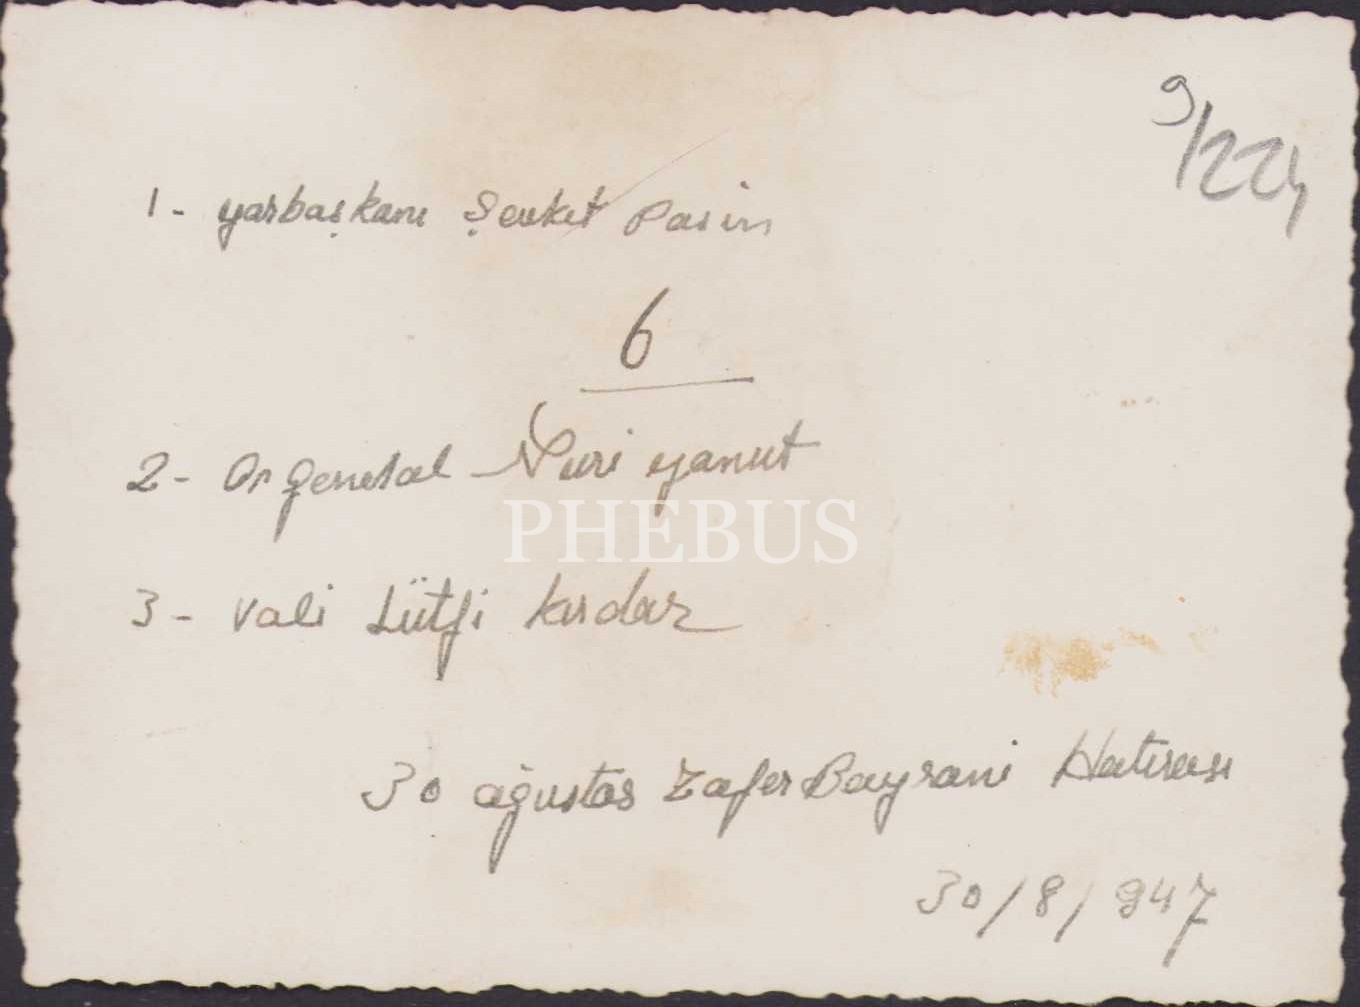 9/224
1 - yarbaşkanı Şevket Pasin
6
2 - Orgeneral Nuri yamut
PHEBUS
3 - Vali Lütfi kırdar
30 ağustos Zafer Bayramı Hatırası
30/8/947